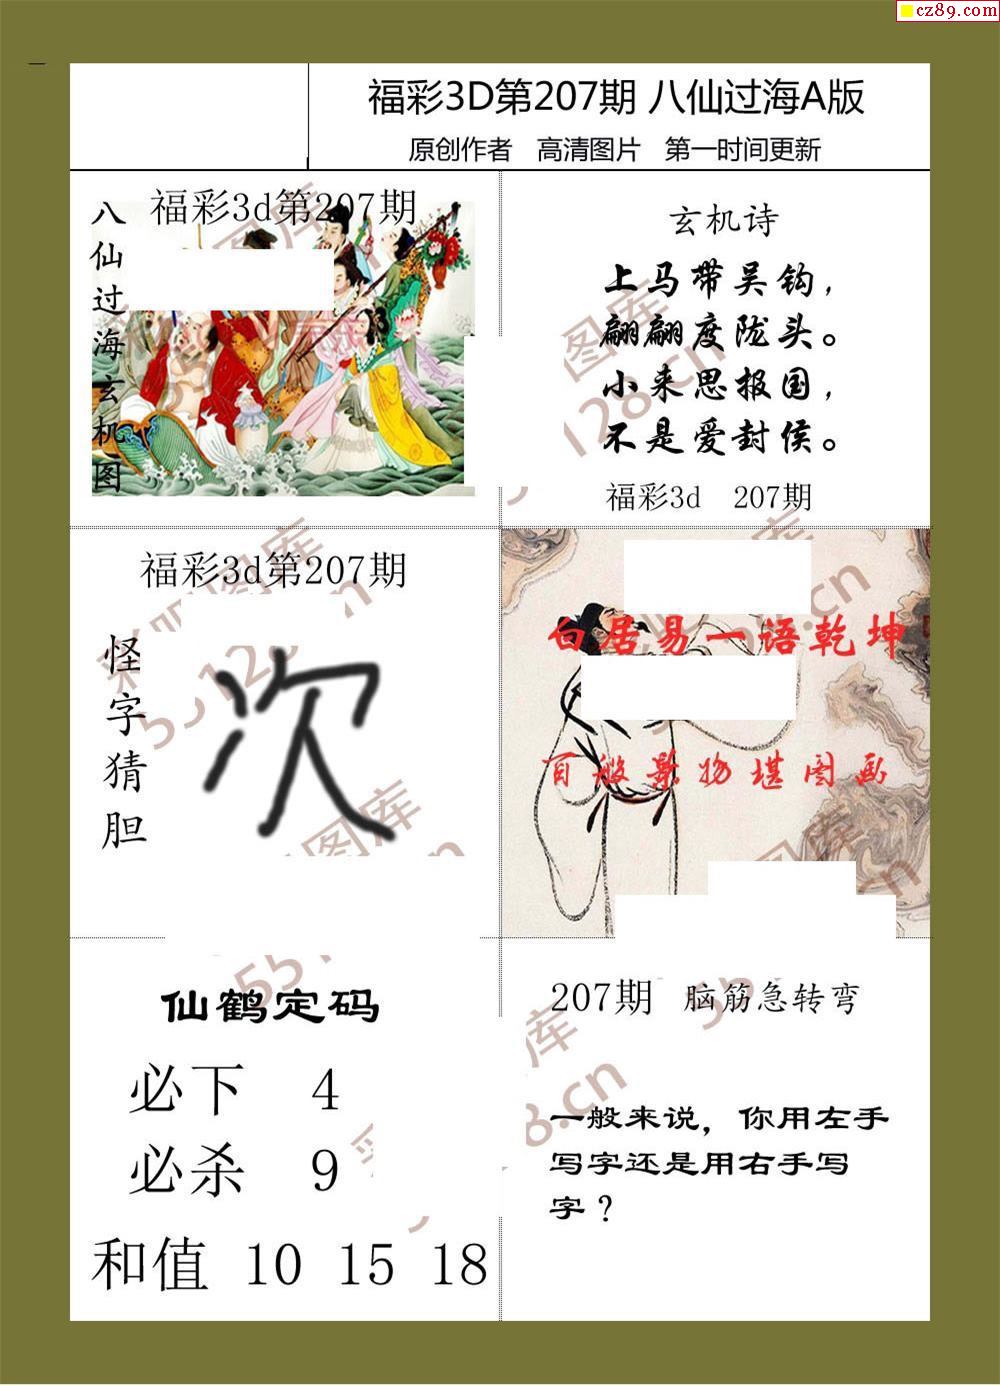 cz89.com
福彩3D第207期 八仙过海A版
原创作者 高清图片 第一时间更新
福彩3d第207期
八仙过海玄机图
玄机诗
上马带吴钩，
翩翩度陇头。
小来思报国，
不是爱封侯。
福彩3d 207期
福彩3d第207期
怪字猜胆
次
白居易一语乾坤
百般影物堪图画
仙鹤定码
必下 4
必杀 9
和值 10 15 18
207期 脑筋急转弯
一般来说，你用左手
写字还是用右手写
字？